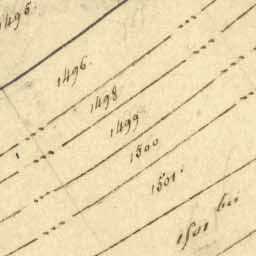 1495.
1496.
1498
1499
1500
1501.
1501 bis